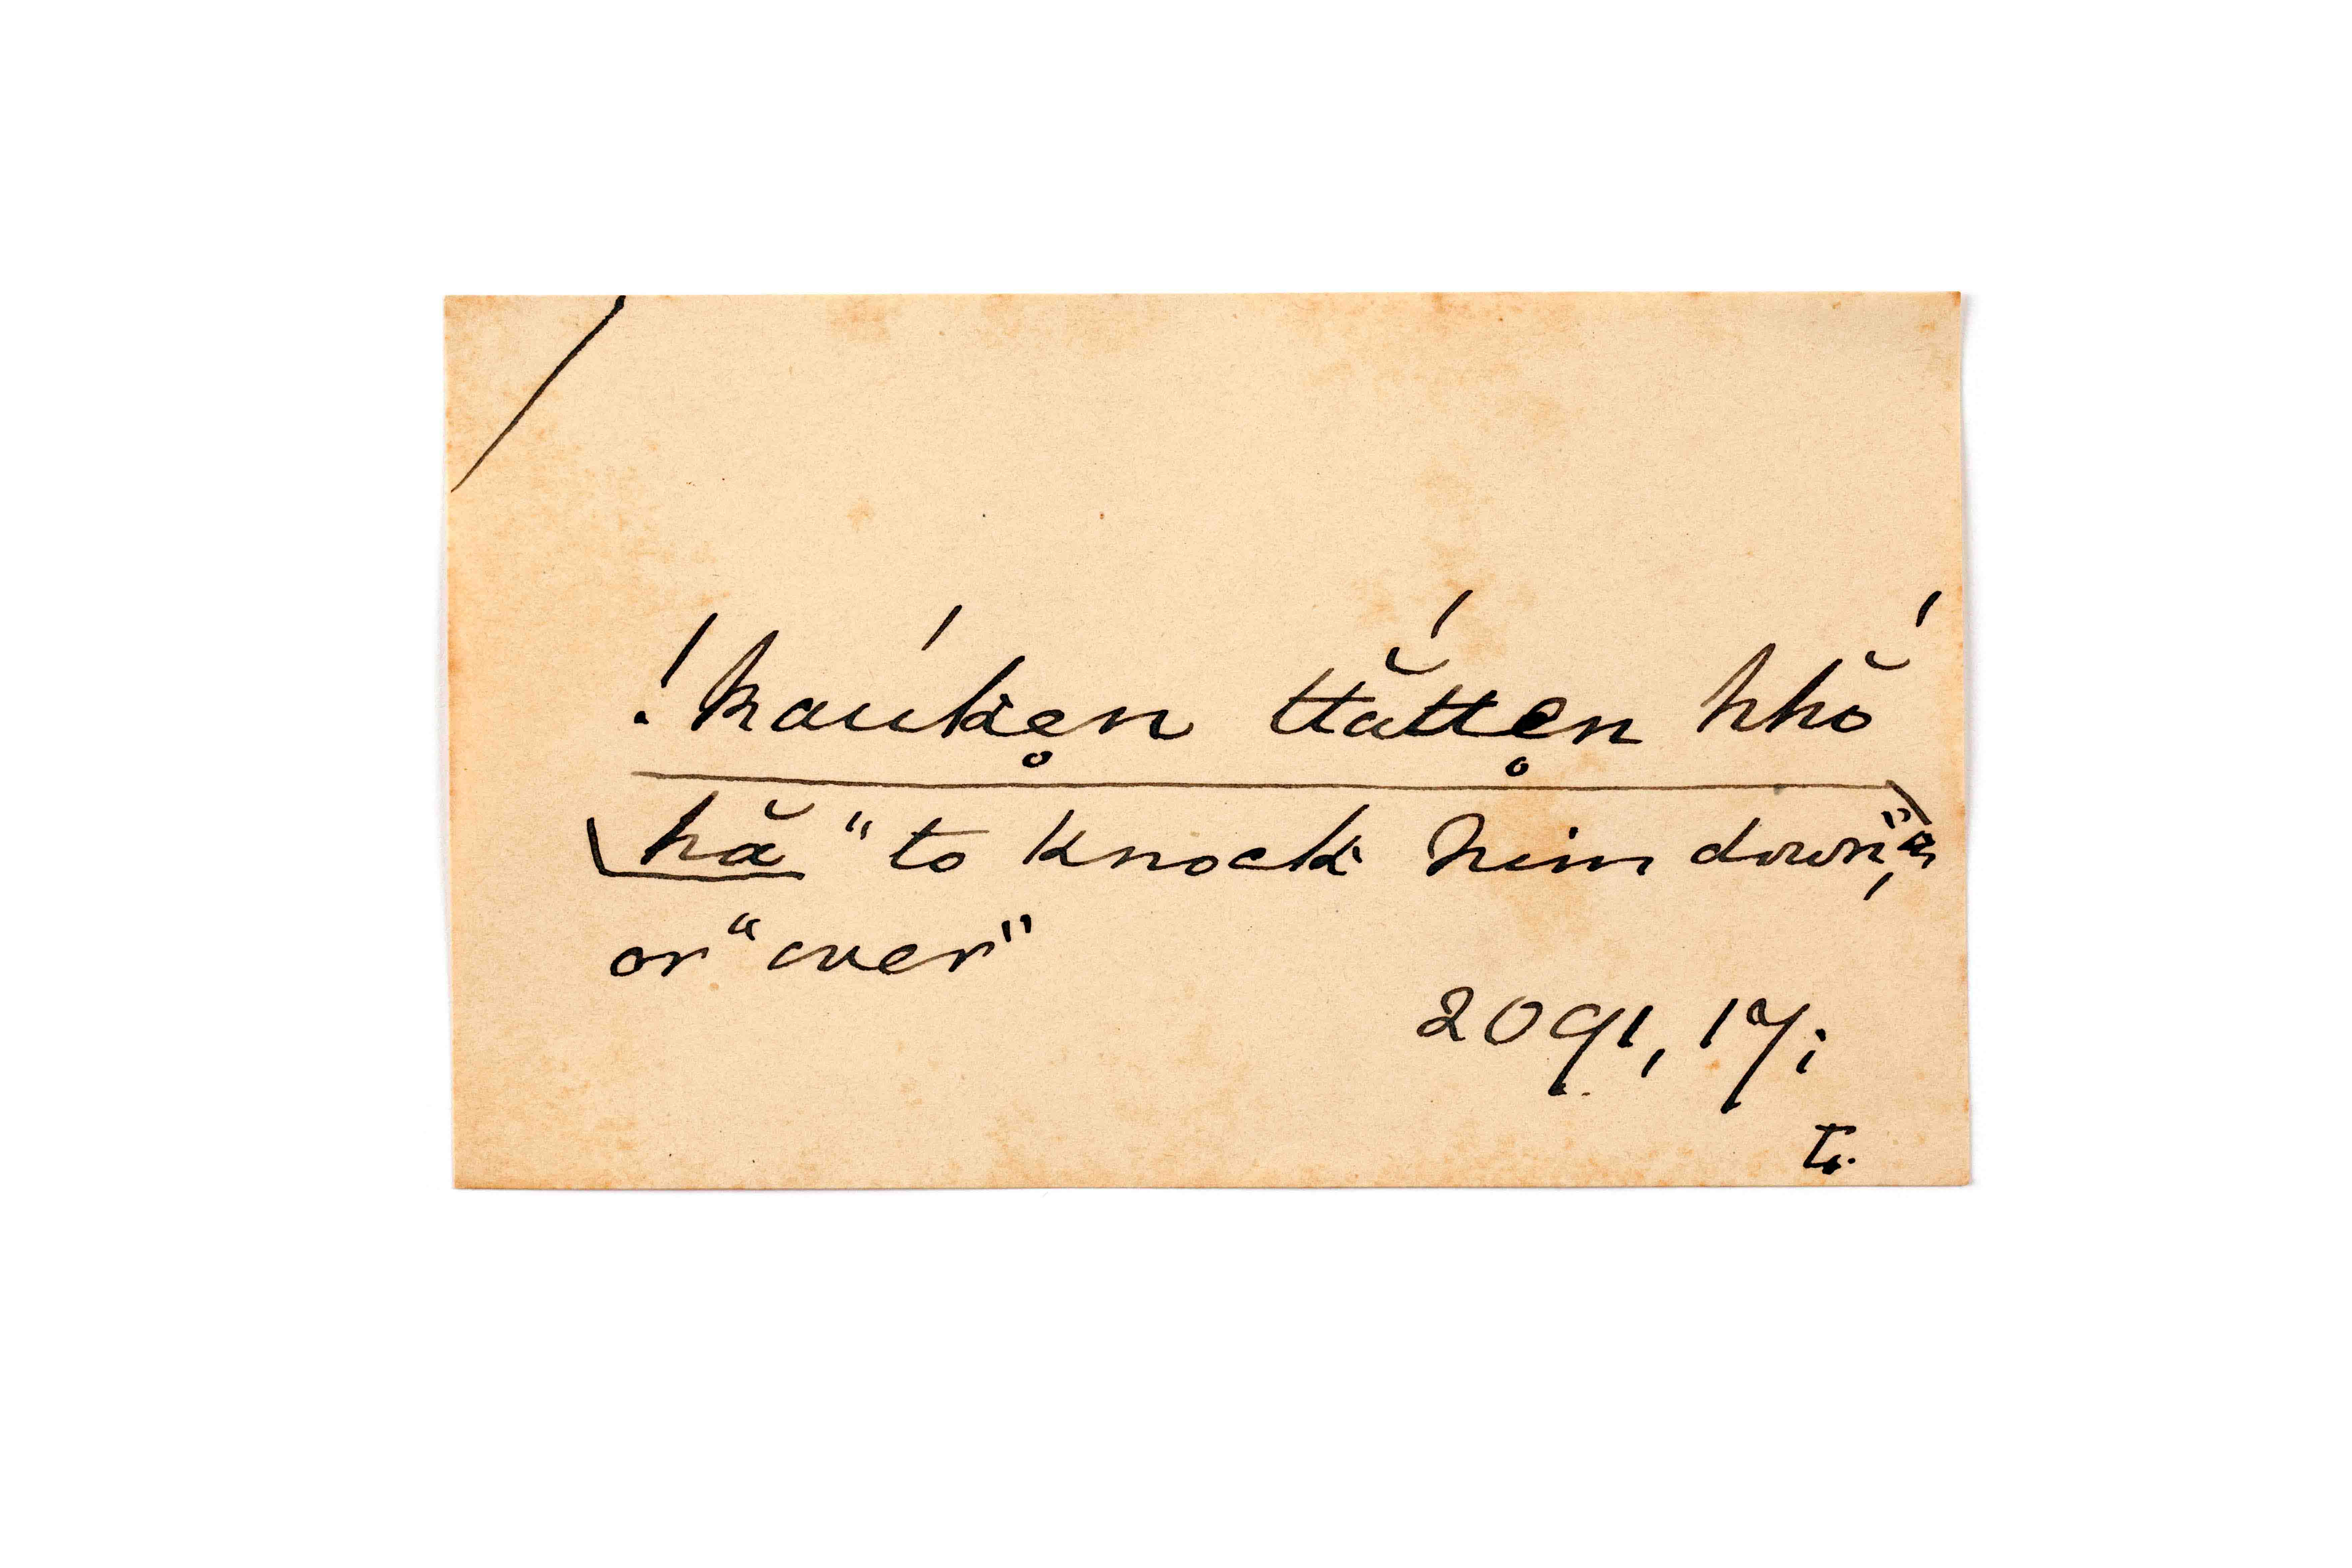 !kaúken̥ ttắtten̥ hhŏ́
hă "to knock him down",
or "over"
2091, 17;
tr.